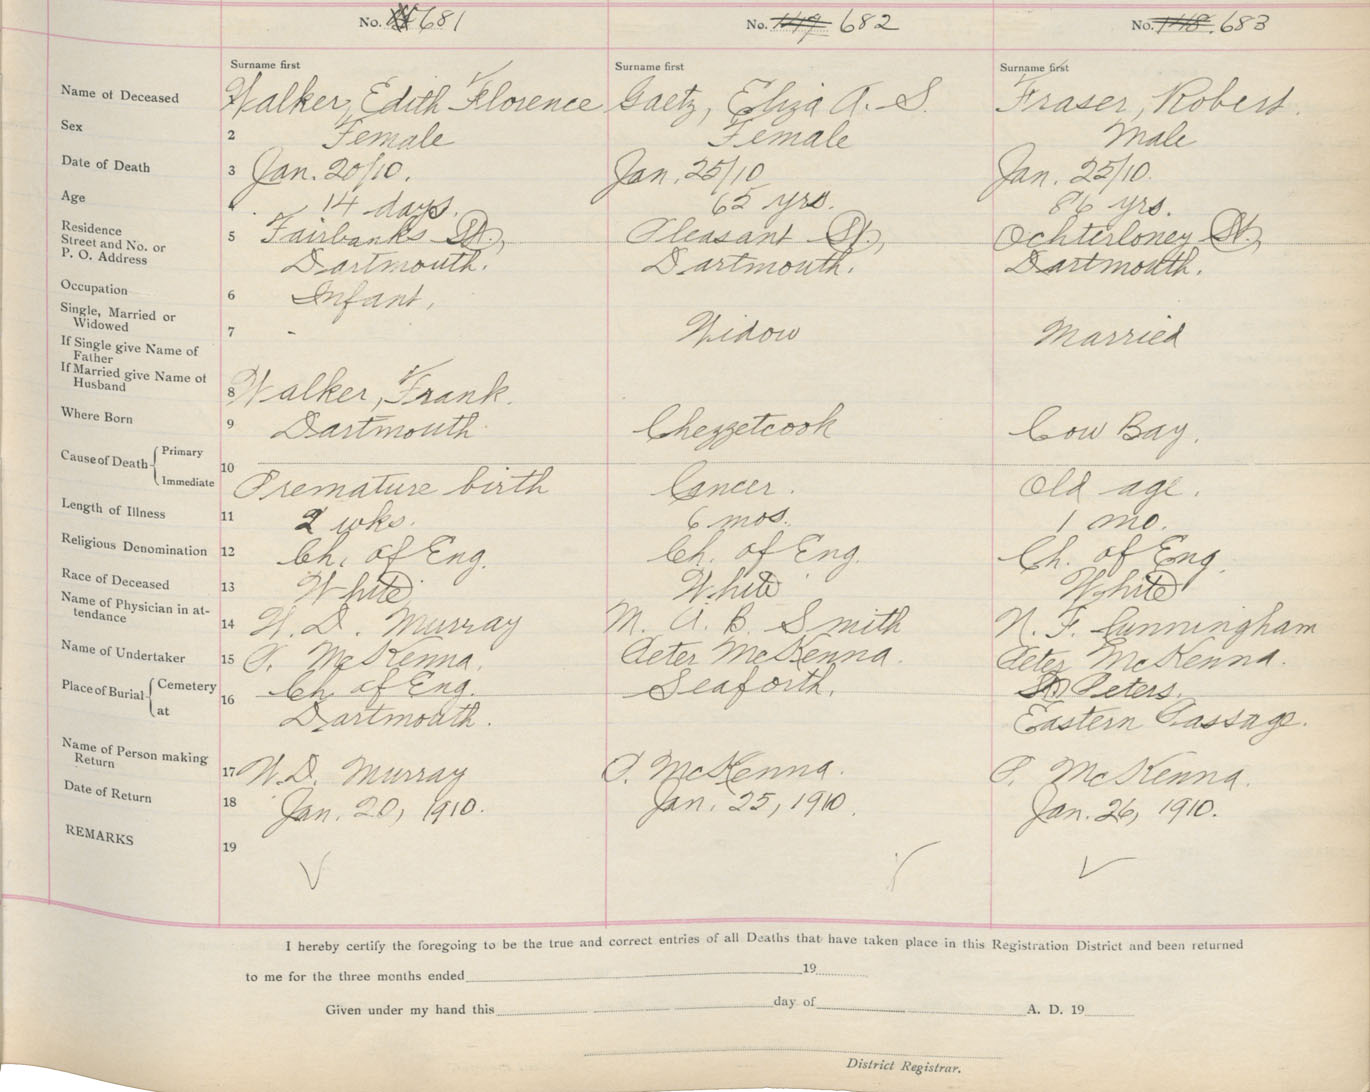 No. 681 No. 149 682 No. 148. 683
Surname first Surname first Surname first
Name of Deceased Walker, Edith Florence Gaetz, Eliza A. S. Fraser, Robert.
Sex 2 Female Female Male
Date of Death 3 Jan. 20/10. Jan. 25/10 Jan. 25/10.
Age 4 14 days. 65 yrs. 86 yrs.
Residence
Street and No. or
P. O. Address
5 Fairbanks St., Pleasant St., Ochterloney St.,
Dartmouth. Dartmouth. Dartmouth.
Occupation 6 Infant,
Single, Married or
Widowed
7 - Widow Married
If Single give Name of
Father
If Married give Name of
Husband
8 Walker, Frank.
Where Born 9 Dartmouth Chezzetcook Cow Bay.
Cause of Death Primary
10
Immediate Premature birth Cancer. Old age.
Length of Illness 11 2 wks. 6 mos. 1 mo.
Religious Denomination 12 Ch. of Eng. Ch. of Eng. Ch. of Eng.
Race of Deceased 13 White White White
Name of Physician in at-
tendance
14 W. D. Murray M. A. B. Smith N. F. Cunningham
Name of Undertaker 15 P. McKenna. Peter McKenna. Peter McKenna.
Place of Burial Cemetery 16 Ch of Eng. Seaforth. St Peters.
at Dartmouth. Eastern Passage.
Name of Person making
Return
17 W. D. Murray P. McKenna. P. McKenna.
Date of Return 18 Jan. 20, 1910. Jan. 25, 1910. Jan. 26, 1910.
REMARKS 19
I hereby certify the foregoing to be the true and correct entries of all Deaths that have taken place in this Registration District and been returned
to me for the three months ended 19
Given under my hand this day of A. D. 19
District Registrar.